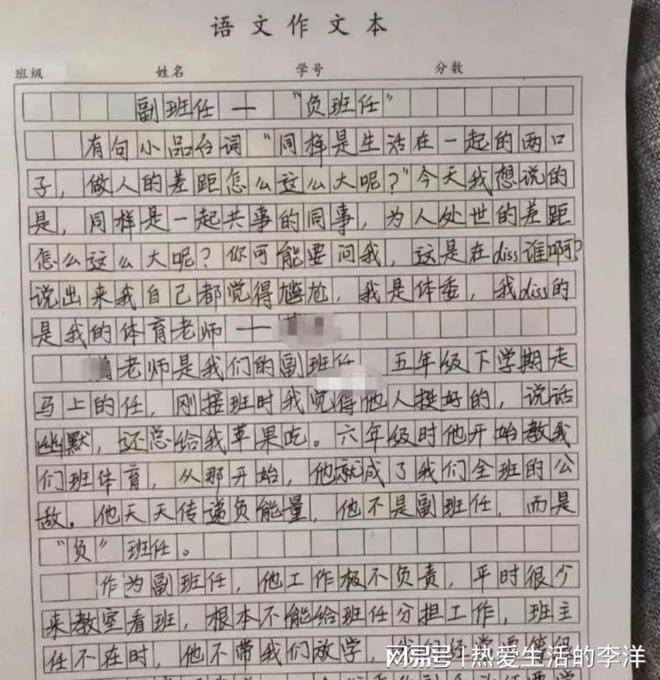 语文作文本
班级 姓名 学号 分数
副班任 — "负班任"
有句小品台词"同样是生活在一起的两口
子，做人的差距怎么这么大呢？"今天我想说的
是，同样是一起共事的同事，为人处世的差距
怎么这么大呢？你可能要问我，这是在diss谁啊？
说出来我自己都觉得尴尬，我是体委，我diss的
是我的体育老师 —
老师是我们的副班任，五年级下学期走
马上的任，刚接班时我觉得他人挺好的，说话
幽默，还总给我苹果吃。六年级时他开始教我
们班体育，从那开始，他就成了我们全班的公
敌。他天天传递负能量，他不是副班任，而是
"负"班任。
作为副班任，他工作极不负责，平时很少
来教室看班，根本不能给班任分担工作，班主
任不在时，他不带我们放学，我们
网易号 | 热爱生活的李洋